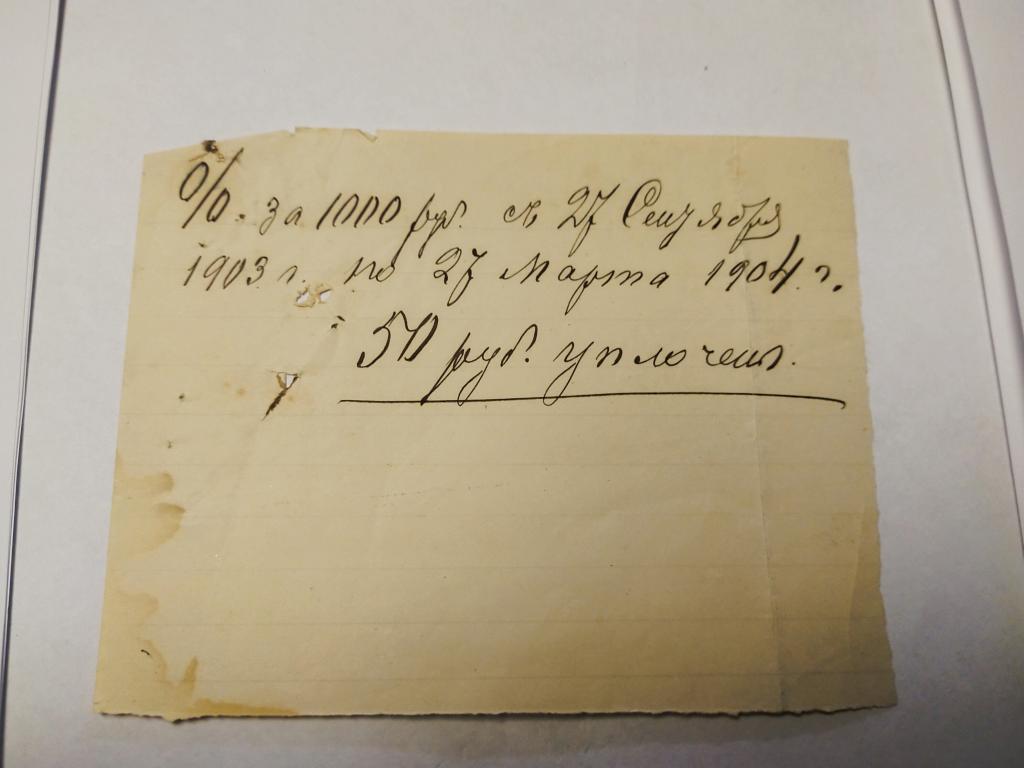 %. за 1000 руб. съ 27 Сентября
1903 г. по 27 Марта 1904 г.
50 руб. уплочены.